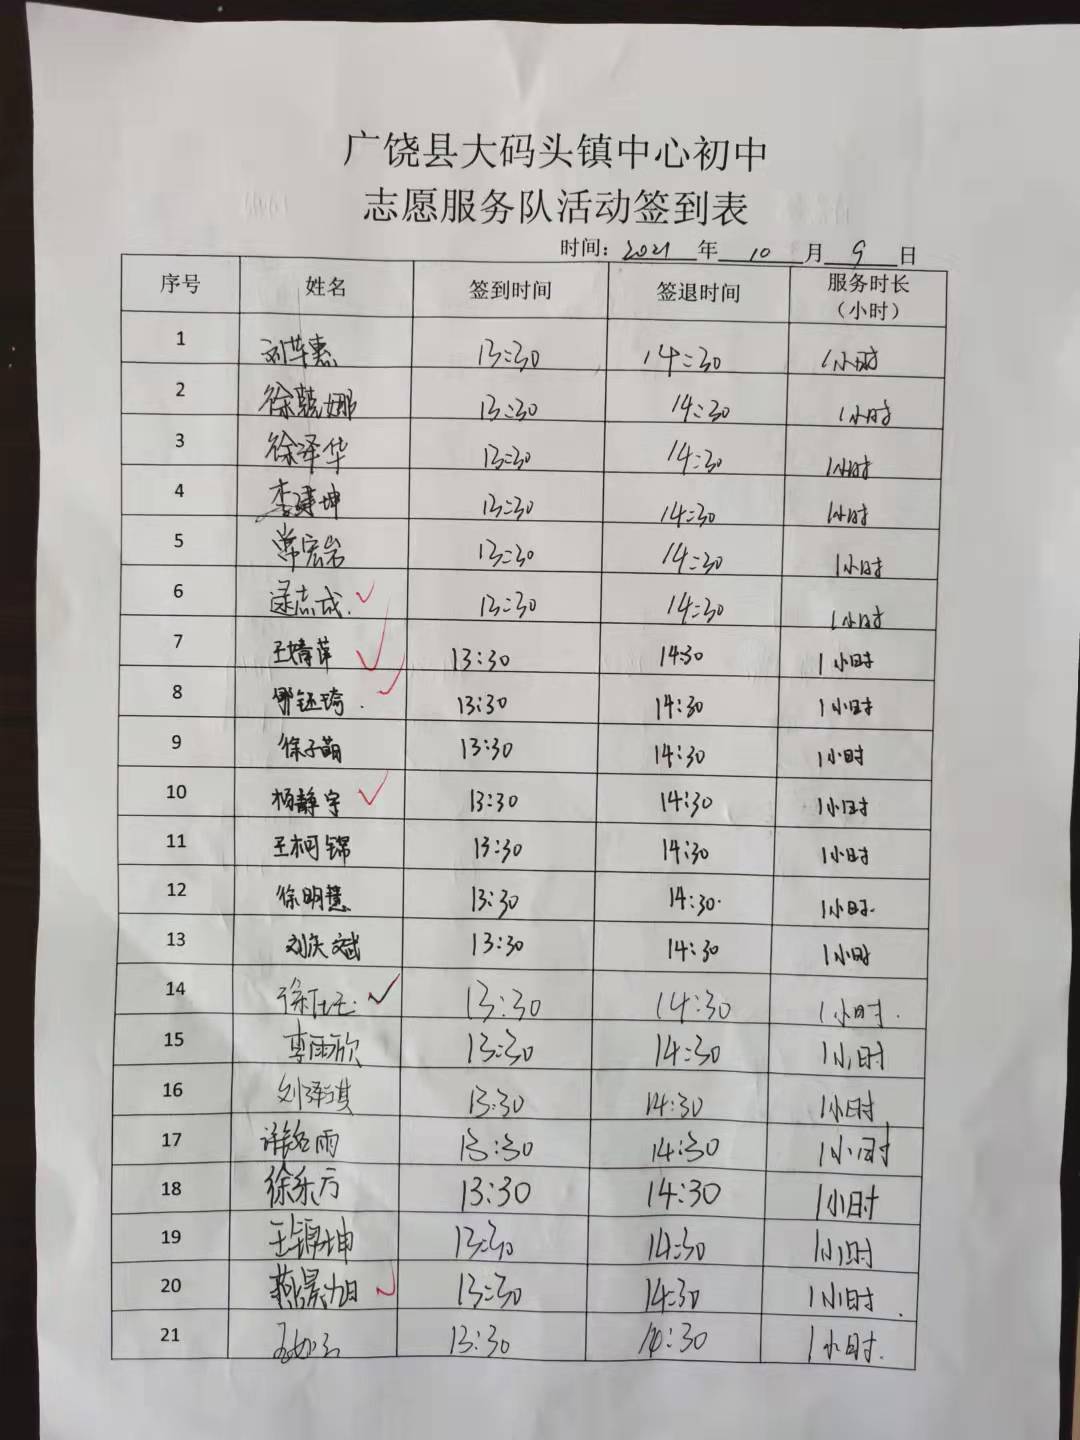 广饶县大码头镇中心初中
志愿服务队活动签到表
时间：2021年10月9日
序号 姓名 签到时间 签退时间 服务时长（小时）
1 刘苹惠 13:30 14:30 1小时
2 徐懿娜 13:30 14:30 1小时
3 徐泽华 13:30 14:30 1小时
4 李建坤 13:30 14:30 1小时
5 常宏岩 13:30 14:30 1小时
6 逯志成 13:30 14:30 1小时
7 王婧萍 13:30 14:30 1小时
8 钰琦 13:30 14:30 1小时
9 徐子萌 13:30 14:30 1小时
10 杨静宇 13:30 14:30 1小时
11 王柯锦 13:30 14:30 1小时
12 徐明慧 13:30 14:30 1小时
13 刘庆斌 13:30 14:30 1小时
14 徐 13:30 14:30 1小时
15 李雨欣 13:30 14:30 1小时
16 刘泽淇 13:30 14:30 1小时
17 雨 13:30 14:30 1小时
18 徐东方 13:30 14:30 1小时
19 王锦坤 13:30 14:30 1小时
20 燕景旭 13:30 14:30 1小时
21 13:30 14:30 1小时